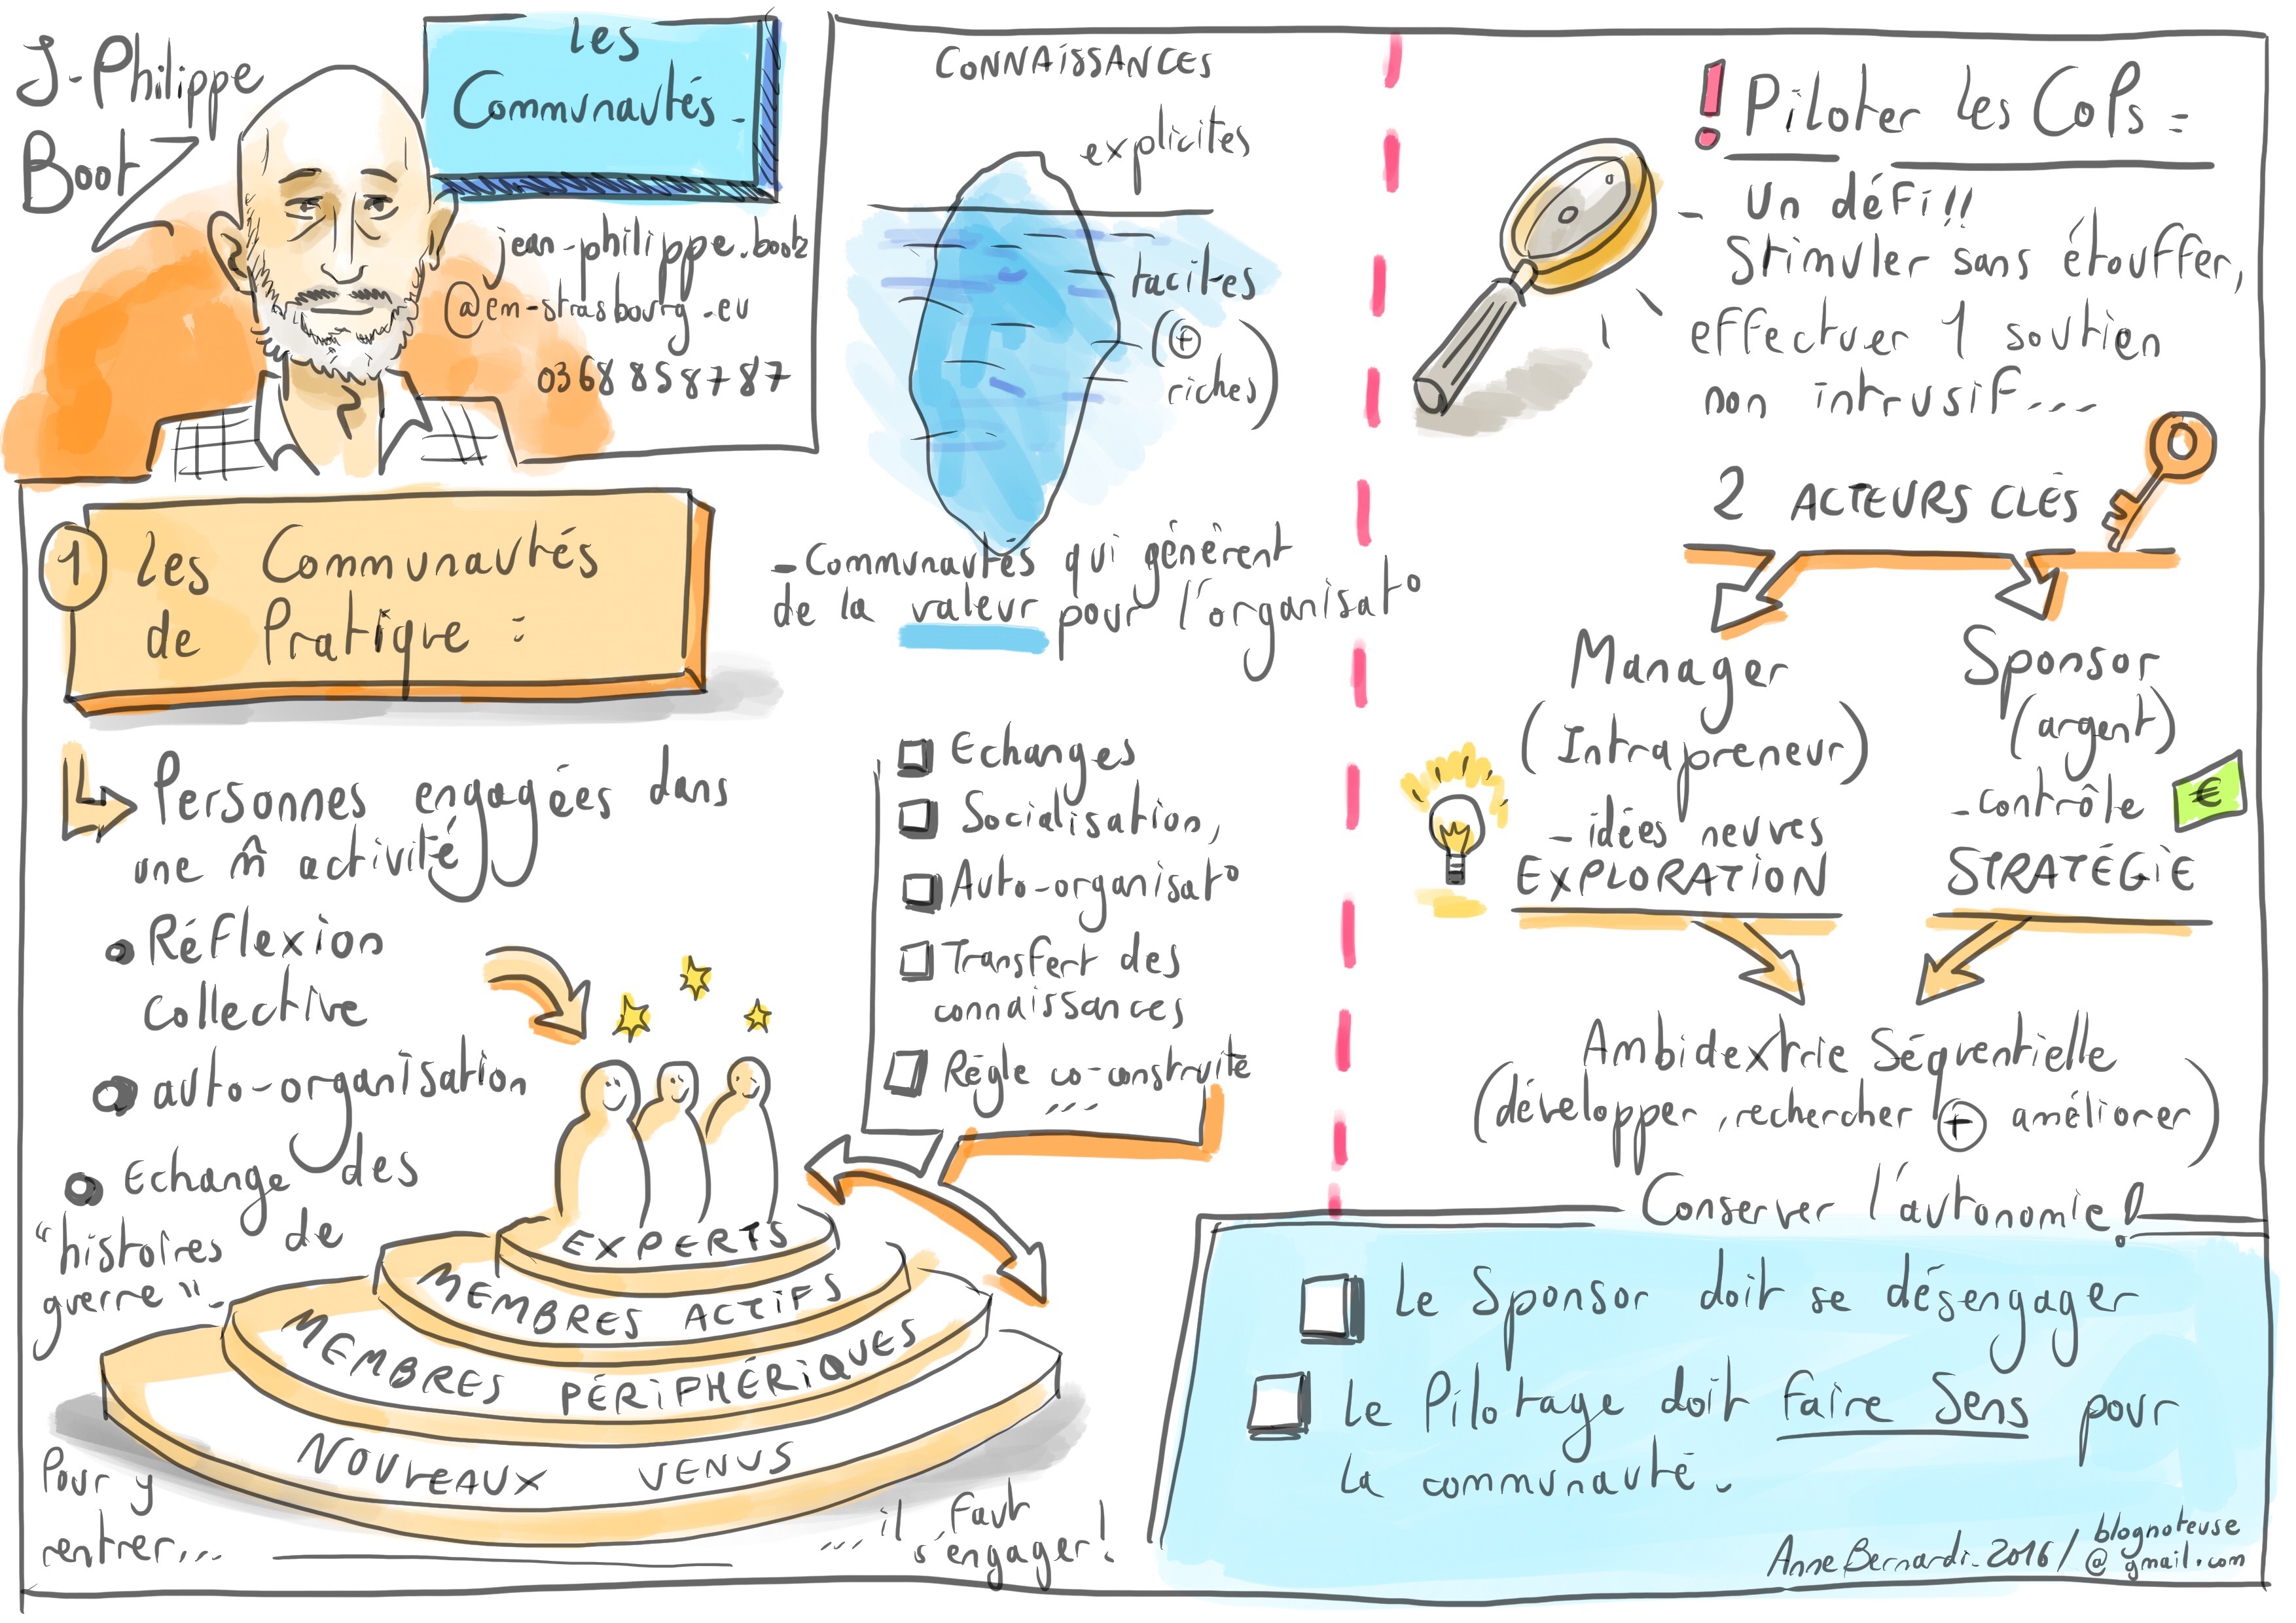 J-Philippe
BootZ
Les
Communautés-
jean-philippe.bootz
@em-strasbourg.eu
03 68 85 87 87
① Les Communautés
de Pratique :
Personnes engagées dans
une m̂ activité
Réflexion
collective
auto-organisation
Echange des
"histoires de
guerre".
EXPERTS
MEMBRES ACTIFS
MEMBRES PÉRIPHÉRIQUES
NOUVEAUX VENUS
Pour y
rentrer...
... il faut
s'engager!
CONNAISSANCES
explicites
tacites
(⊕
riches)
- Communautés qui génèrent
de la valeur pour l'organisat°
Echanges
Socialisation,
Auto-organisat°
Transfert des
connaissances
Règle co-construite
...
! Piloter les CoPs =
- Un défi!!
Stimuler sans étouffer,
effectuer 1 soutien
non intrusif...
2 ACTEURS CLÉS
Manager
(Intrapreneur)
- idées neuves
EXPLORATION
Sponsor
(argent)
- contrôle
€
STRATÉGIE
Ambidextrie Séquentielle
(développer, rechercher ⊕ améliorer)
Conserver l'autonomie!
Le Sponsor doit se désengager
Le Pilotage doit faire Sens pour
la communauté.
Anne Bernardi-2016/ blognoteuse
@gmail.com